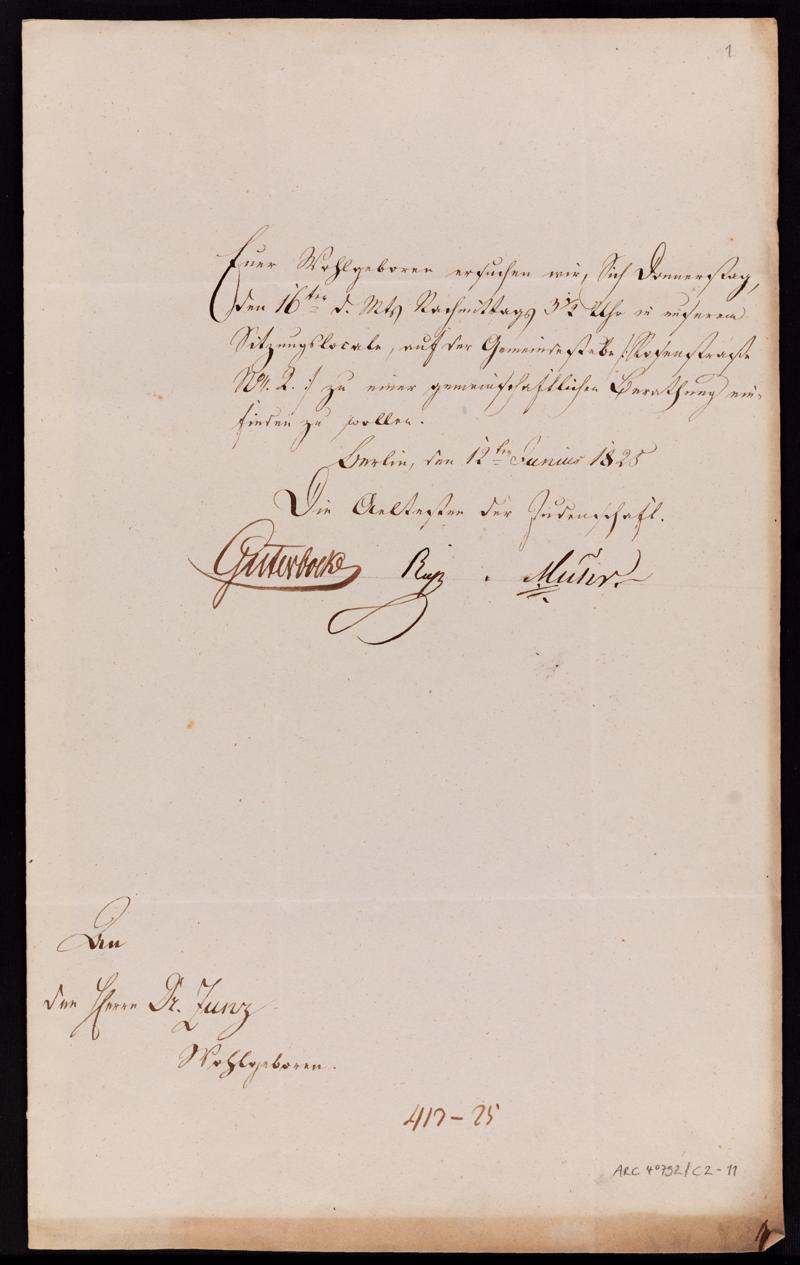 1
Euer Wohlgeboren ersuchen wir, Sich Donnerstag,
den 16ten d. Mts Nachmittags 3½ Uhr in unserem
Sitzungslocale, auf der Gemeindestube /: Rosenstraße
No. 2. :/ zu einer gemeinschaftlichen Berathung ein-
finden zu wollen.
Berlin, den 12ten Junius 1825
Die Aeltesten der Judenschaft.
Guterbocke Muhr
An
den Herrn Dr. Zunz
Wohlgeboren.
417-25
ARC 4°792/C2-11